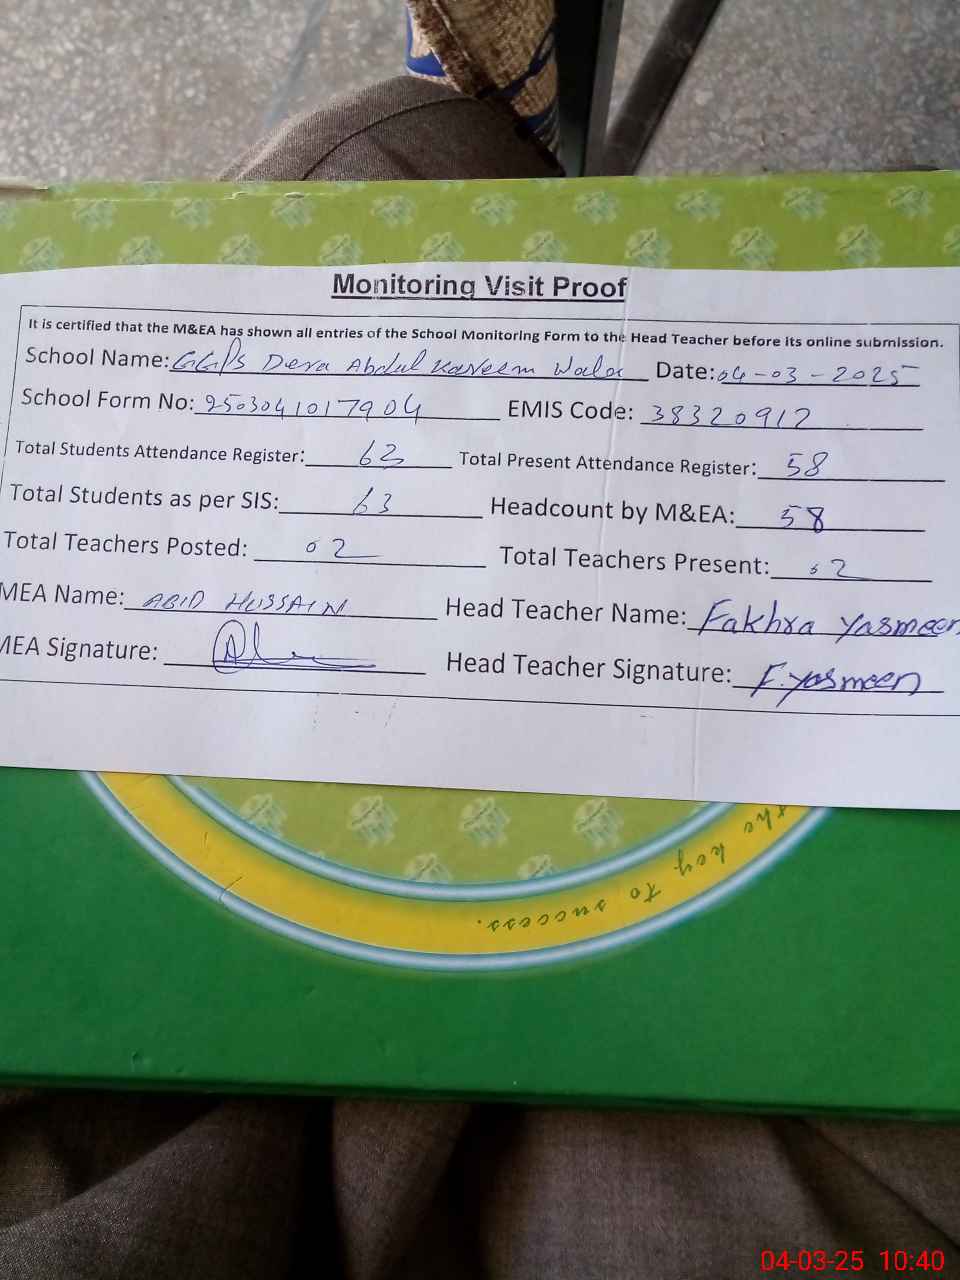 Monitoring Visit Proof
It is certified that the M&EA has shown all entries of the School Monitoring Form to the Head Teacher before its online submission.
School Name: GGPS Dera Abdul Kareem Wala Date: 04-03-2025
School Form No: 9503041017904 EMIS Code: 38320912
Total Students Attendance Register: 63 Total Present Attendance Register: 58
Total Students as per SIS: 63 Headcount by M&EA: 58
Total Teachers Posted: 02 Total Teachers Present: 02
MEA Name: ABID HUSSAIN Head Teacher Name: Fakhra Yasmeen
MEA Signature: Head Teacher Signature: F.Yasmeen
the key to success.
04-03-25 10:40